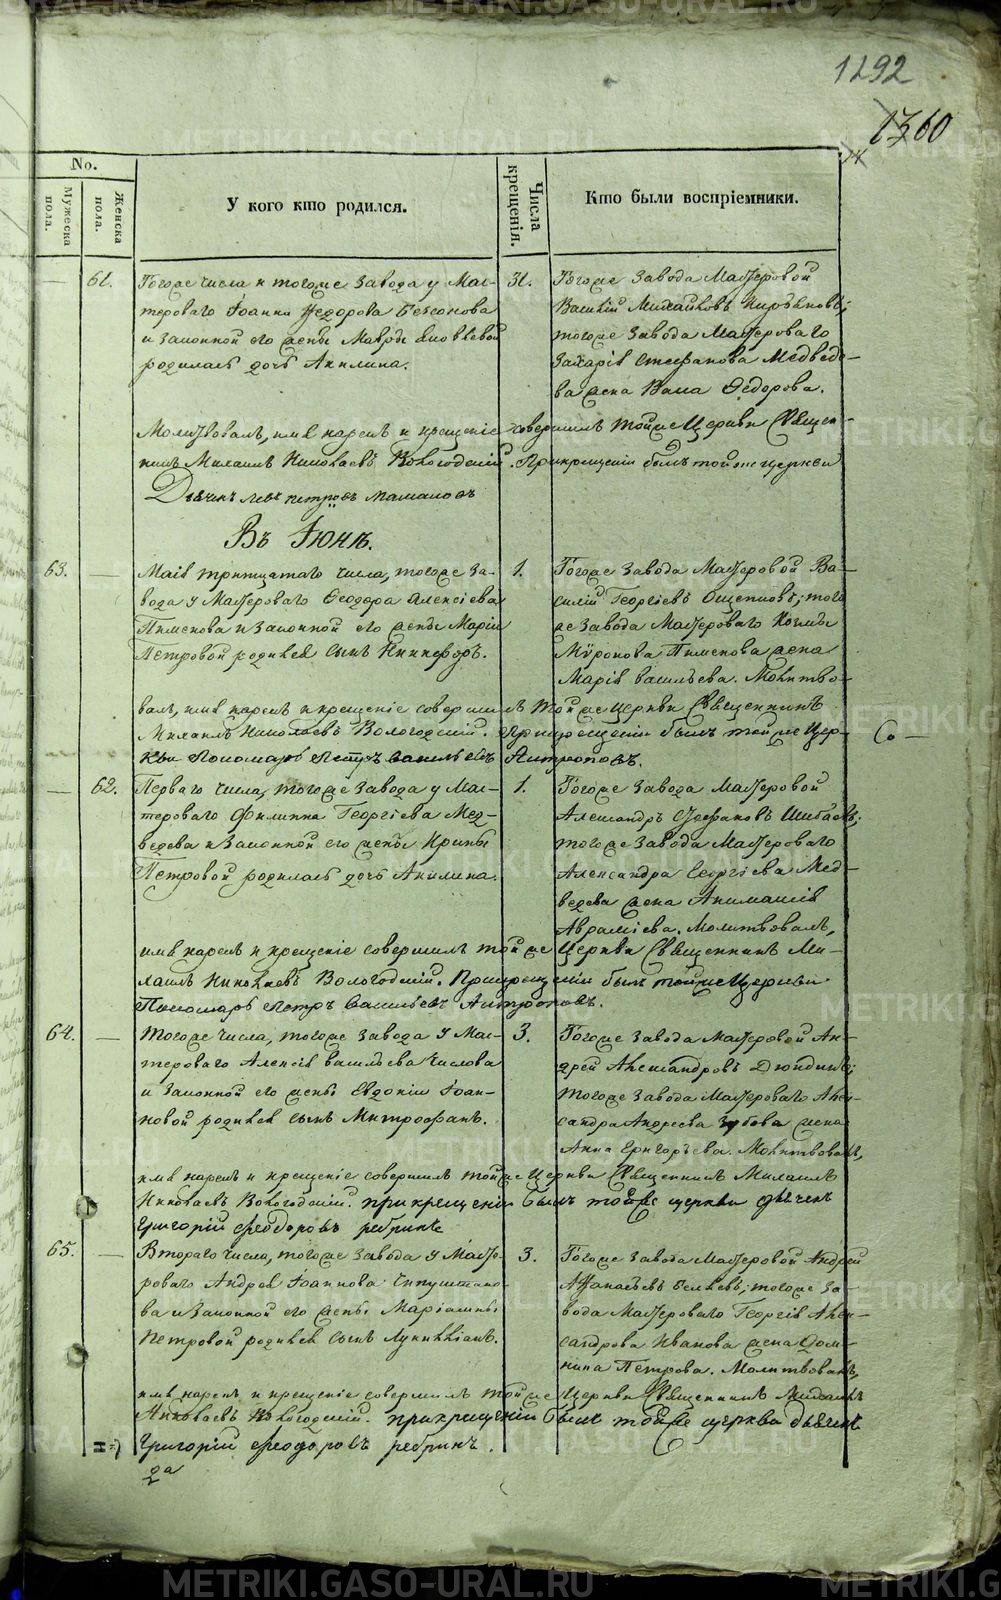 METRIKI.GASO-URAL.RU
1292
1360
No.
Мужеска пола.
Женска пола.
У кого кто родился.
Числа крещенія.
Кто были воспріемники.
61. Тогоже числа и тогоже завода у Мас-
тероваго Іоанна Ѳедорова Безсонова
и законной его жены Мавры Яковлевой
родилась дочь Акилина.
31. Тогоже завода Мастеровой
тогоже завода Мастероваго
Захарія Стефанова Медведе-
ва жена Ѳедорова.
Молитвовалъ, имя нарекъ и крещеніе совершилъ тойже Церкви Священ-
никъ Михаилъ Николаевъ Вологодскій. При крещеніи былъ тойже церкви
Дьячекъ Левъ Петровъ Мамановъ
Въ Іюнѣ.
63. — Маія тритцатаго числа, тогоже за-
вода у Мастероваго Ѳеодора Алексіева
Пименова и законной его жены Маріи
Петровой родился сынъ Никифоръ.
1. Тогоже завода Мастеровой Ва-
силій Георгіевъ Ощепковъ; того
же завода Мастероваго Козмы
Мѵронова Пименова жена
Марія Васильева. Молитво-
валъ, имя нарекъ и крещеніе совершилъ тойже Церкви Священникъ
Михаилъ Николаевъ Вологодскій. При крещеніи былъ тойже Цер-
кви Пономарь Петръ Васильевъ Антроповъ.
Со —
— 62. Перваго числа, тогоже завода у Мас-
тероваго Филиппа Георгіева Мед-
ведева и законной его жены Ирины
Петровой родилась дочь Акилина.
1. Тогоже завода Мастеровой
Александръ Стефановъ Шибаевъ;
тогоже завода Мастероваго
Александра Георгіева Мед-
ведева жена
Авраміева. Молитвовалъ,
имя нарекъ и крещеніе совершилъ тойже Церкви Священникъ Ми-
хаилъ Николаевъ Вологодскій. При крещеніи былъ тойже Церкви
Пономарь Петръ Васильевъ Антроповъ.
64. — Тогоже числа, тогоже завода у Мас-
тероваго Алексія Васильева Числова
и законной его жены Евдокіи Іоан-
новой родился сынъ Митрофанъ.
3. Тогоже завода Мастеровой Ан-
дрей Александровъ Дюндинъ;
тогоже завода Мастероваго Алек-
сандра Андреева Зубова жена
Анна Григорьева. Молитвовалъ,
имя нарекъ и крещеніе совершилъ тойже Церкви Священникъ Михаилъ
Николаевъ Вологодскій. при крещеніи былъ тойже церкви дьячекъ
Григорій Феодоровъ ребринъ
65. — Втораго числа, тогоже завода у Масте-
роваго Андрея Іоаннова Чипуштано-
ва и законной его жены Маріамны
Петровой родился сынъ Лукиліанъ.
3. Тогоже завода Мастеровой Андрей
Аѳанасьевъ Беляевъ; тогоже за-
вода Мастероваго Георгія Алек-
сандрова Иванова жена Дом-
нина Петрова. Молитвовалъ,
имя нарекъ и крещеніе совершилъ тойже Церкви Священникъ Михаилъ
Николаевъ Вологодскій. при крещеніи былъ тойже церкви дьячекъ
Григорій Феодоровъ ребринъ.
METRIKI.GASO-URAL.RU